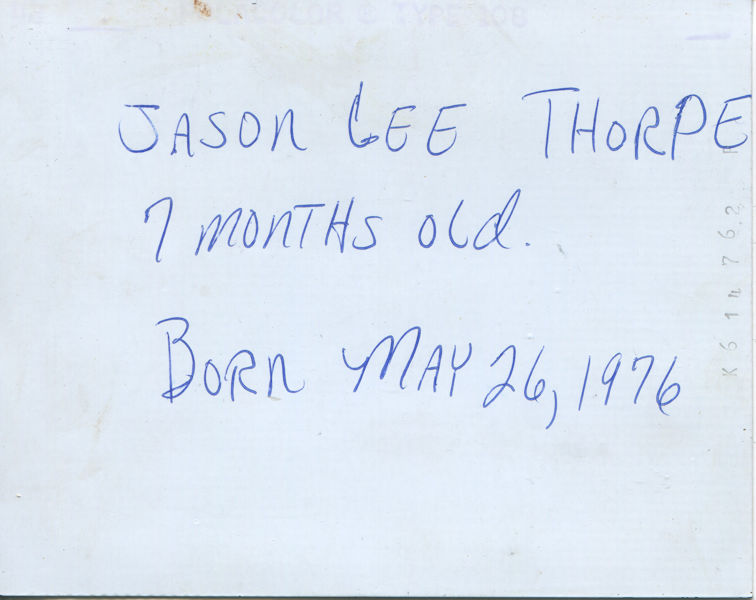 COLOR & TYPE 108
JASON LEE THORPE
7 MONTHS OLD.
BORN MAY 26, 1976